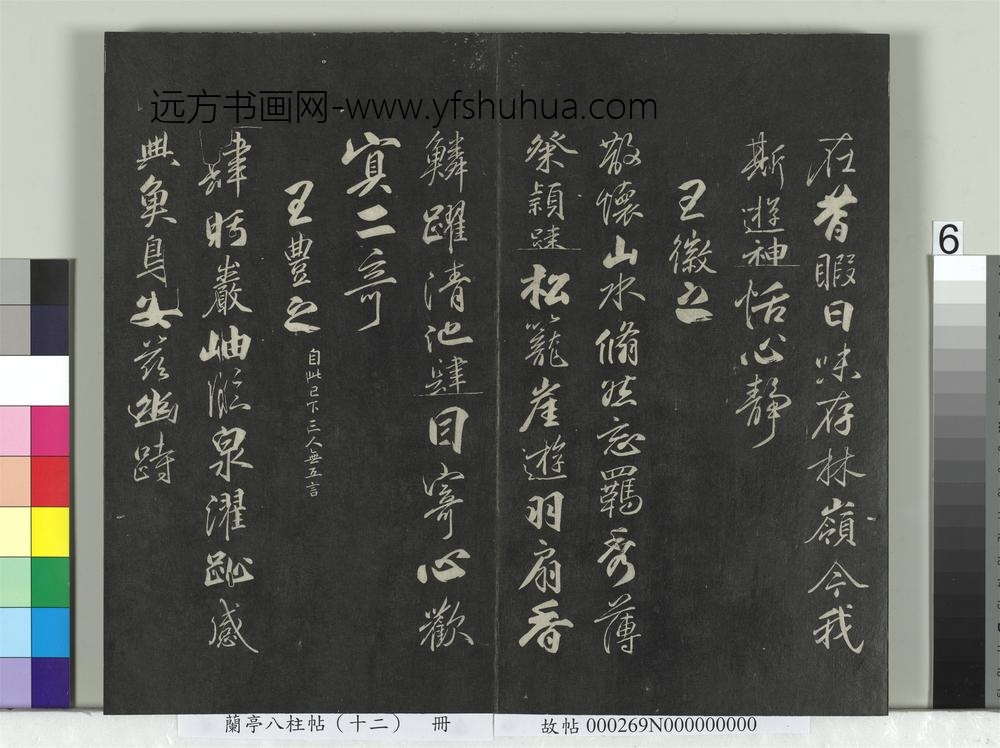 远方书画网-www.yfshuhua.com
在昔暇日味存林嶺今我
斯遊神怡心靜
王徽之
散懷山水翛然忘羈秀薄
粲穎踈松籠崖遊羽扇香
鱗躍清池肆目寄心歡
寘二奇
王豊之
自此已下三人無五言
肆眄巖岫臨泉濯趾感
興魚鳥安茲幽跱
6
蘭亭八柱帖（十二） 冊
故帖 000269N000000000